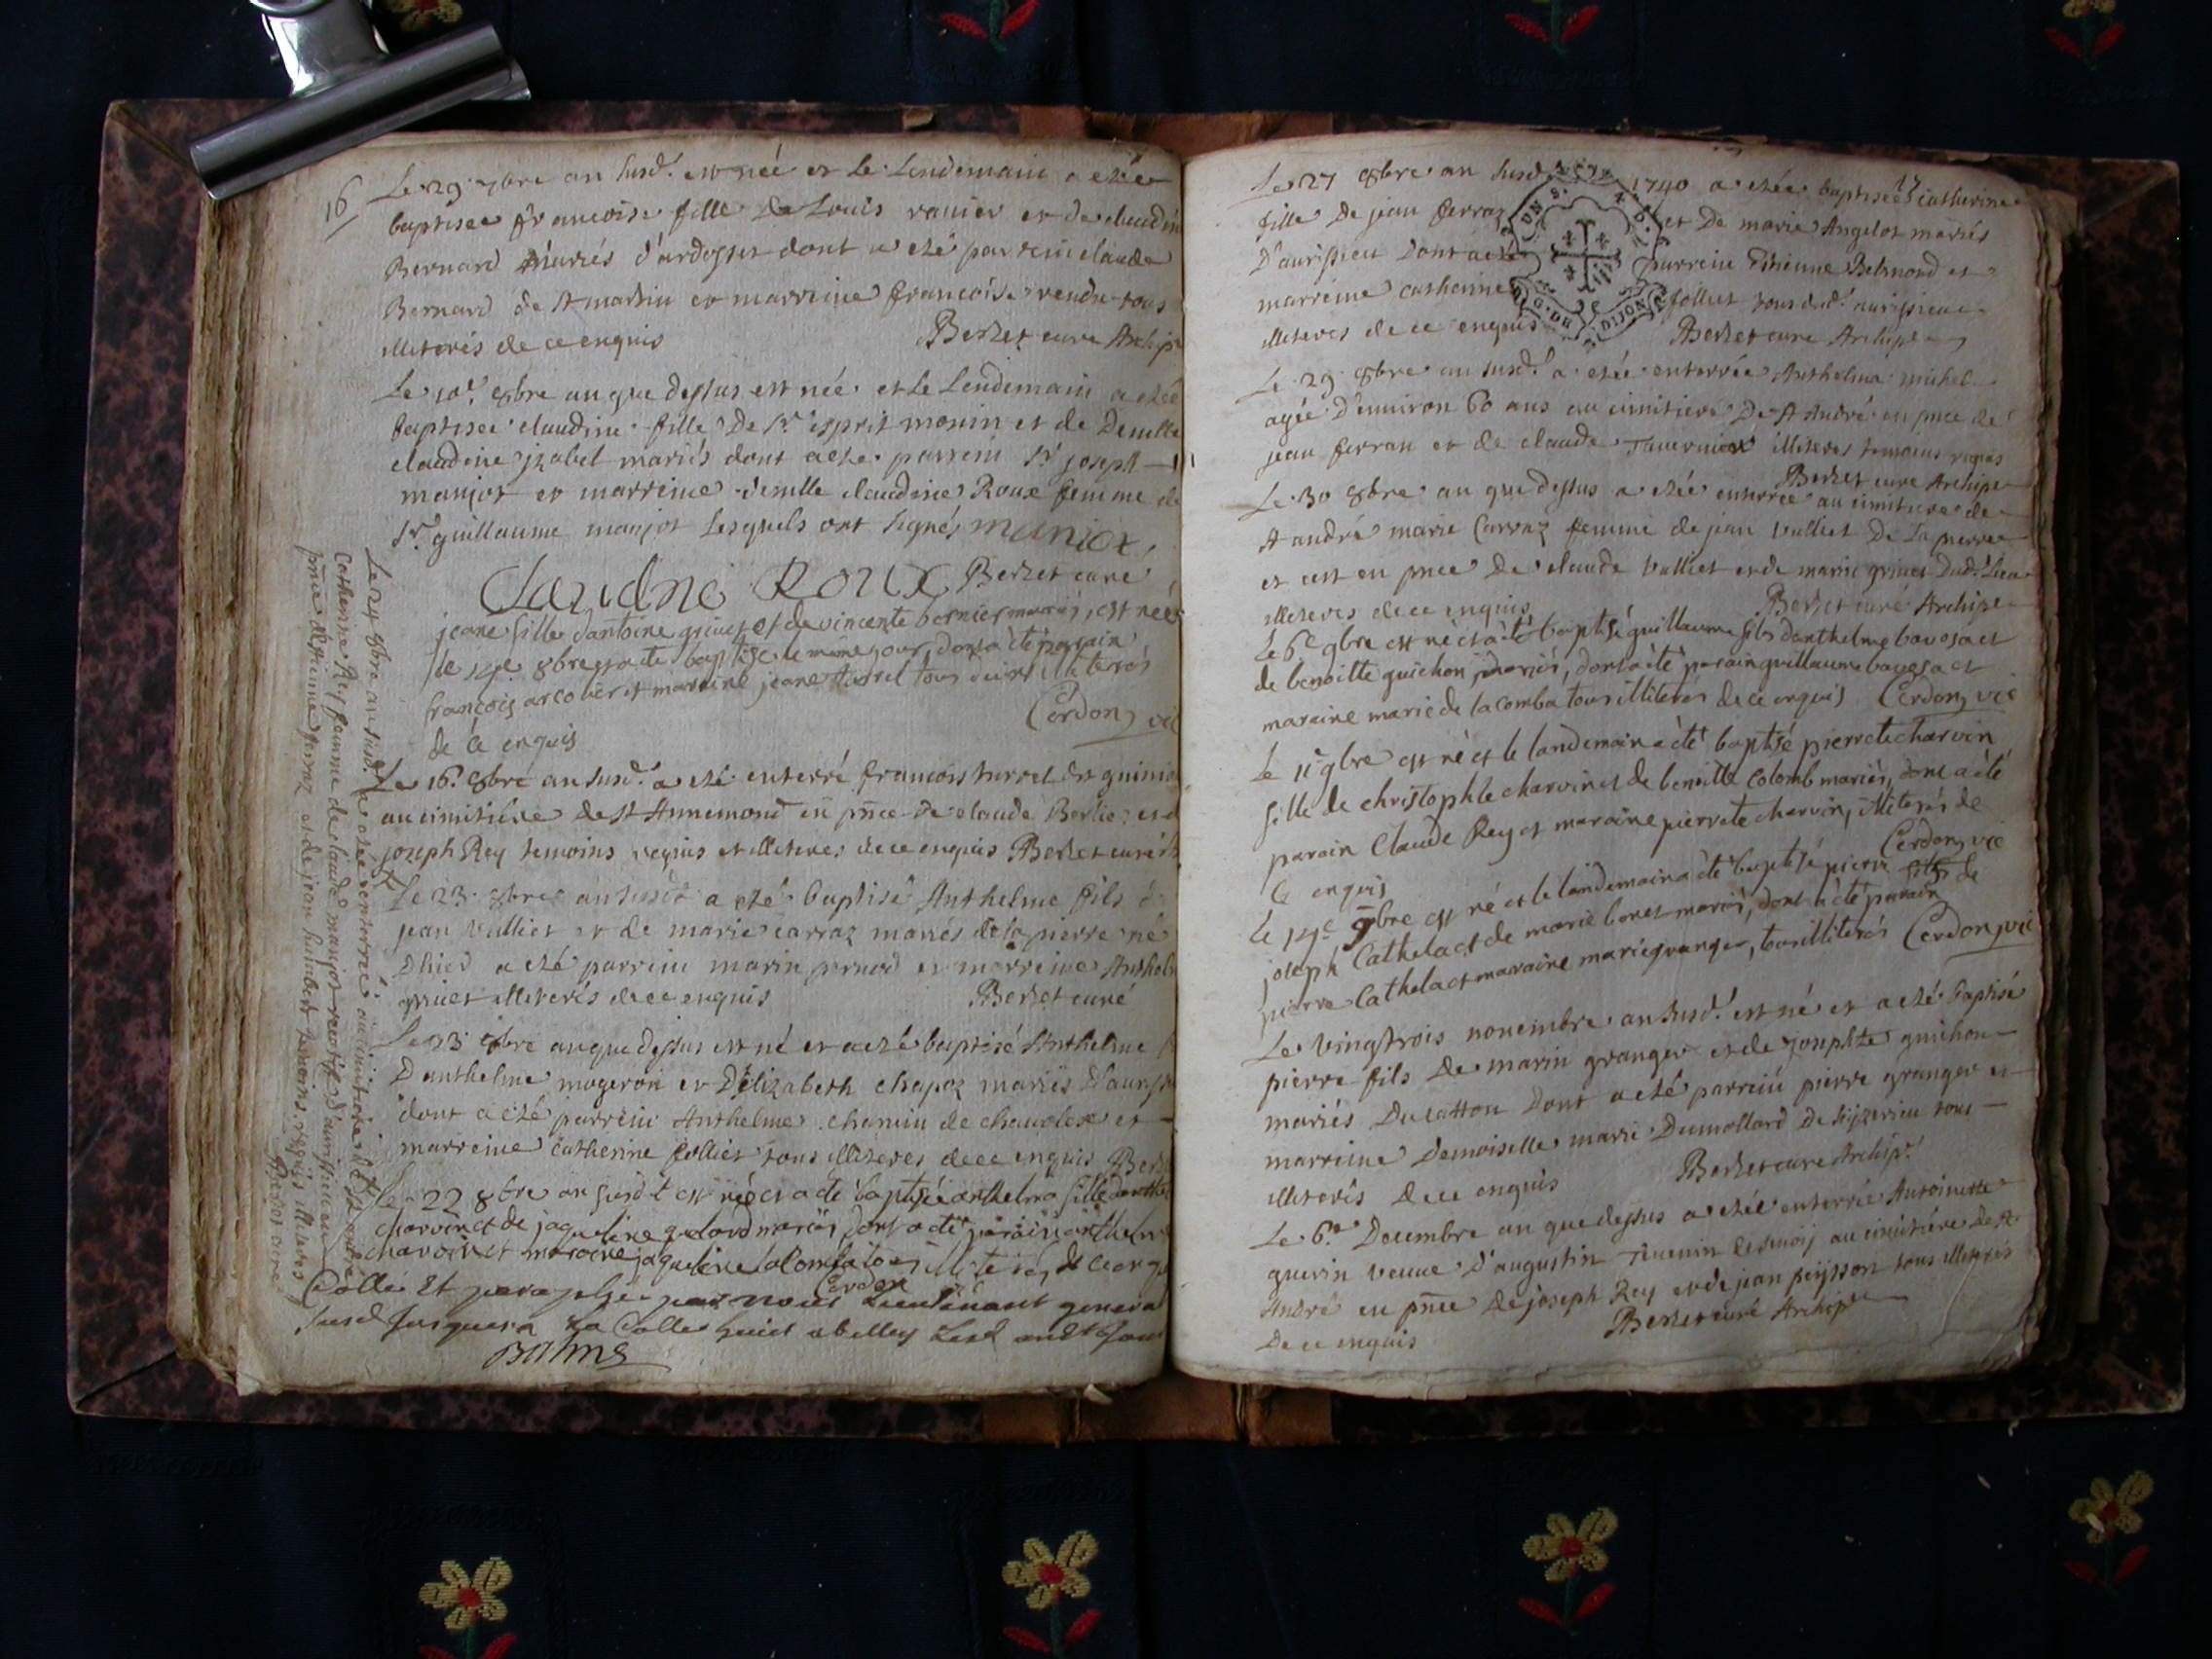 16
Le 29 7bre an susd. est née et le lendemain a etée
baptisée francoise fille de Louis ranier et de claudin
Bernard mariés d'ardosset dont a eté parrein claude
Bernard de st martin et marreine francoise rendu tous
illiterés de ce enquis Berlet cure Archip
Le 10e. 8bre an que dessus est née et le lendemain a etée
baptisee claudine fille de sr. esprit monin et de Demlle
claudine jzabel mariés dont a ete parrein sr joseph
manjot et marreine demlle claudine Roux femme de
sr. guillaume manjot lesquels ont signés maniot,
Claudne Roux Berlet curé
jeane fille dantoine grinet et de vincente bernier mariés, est née
le 14e 8bre et a ete baptisee le même jour, dont a été parain
françois et maraine jeane turrel tous illiterés
de ce enquis Cerdon, vic
Le 16. 8bre an susd. a eté enterré francois turrel dit guinio
au cimitiere de st Annemond en pnce de claude Berlie et d
joseph Rey temoins requis et illiteres de ce enquis Berlet curé
Le 23 8bre an susdt a eté baptisé Anthelme fils d
jean Vulliet et de marie carraz mariés de la pierre né
d'hier a eté parrein marin et marreine Anthel
grinet illiterés de ce enquis Berlet curé
Le 23 8bre an que dessus est né et a eté baptisé Anthelme
D'anthelme mogeron et D'elizabeth chapoz mariés D'auriss
dont a eté parrein Anthelme chanin de et
marreine catherine folliet tous illiteres de ce enquis Berl
Le 22 8bre an susdt est née et a été baptisée anthelma fille danthel
charvin et de jaqueline mariés dont a été parain anthelm
charvin et maraine jaqueline Colomb tous illiterés de ce enqu
Cerdon
Collé et paraphé par nous Lieutenant general
susd jusquera La Colle
Balme
Le 24 8bre an susd. a etée enterrée au cimitiere de st andré
Catherine Rey femme de claude manjot d'aurissieu en
pnce d'etienne ferraz et de jean humbert temoins requis illiteres
Berlet curé
17
Le 27 8bre an susd. 1740 a etée baptisée catherine
fille de jean ferraz et de marie Angelot mariés
D'aurissieu dont a eté parrein Etienne Belmond et
marreine catherine folliet tous dud. aurissieu
illiteres de ce enquis Berlet cure Archipr
DIJON
Le 29 8bre an susd. a etée enterrée Anthelma michel
agée d'environ 60 ans au cimitiere de st André en pnce de
jean ferran et de claude Tavernier illiteres temoins requis
Berlet cure Archipr
Le 30 8bre an que dessus a etée enterrée au cimitiere de
st andré marie Carraz femme de jean Vulliet de la pierre
et cest en pnce de claude Vulliet et de marin grinet dud. lieu
illiteres de ce enquis Berlet curé Archipr
Le 6e 9bre est né et a été baptisé guillaume fils danthelme bavosa et
de benoitte guichon mariés, dont a été parain guillaume bavosa et
maraine marie de lacomba tous illiterés de ce enquis Cerdon, vic
le 11e 9bre est né et le landemain a été baptisé pierrete charvin
fille de christophle charvin et de benoitte Colomb mariés, dont a été
parain Claude Rey et maraine pierrete charvin, illiterés de
ce enquis Cerdon, vic
le 14e 9bre est né et le landemain a été baptisé pierre fils de
joseph Cathelact de marie bonet mariés, dont a été parain
pierre Cathelact maraine marie granger, tous illiterés Cerdon, vic
Le vingtrois novembre an susd. est né et a eté baptisé
pierre fils de marin granger et de josephte guichon
mariés Du catton dont a eté parrein pierre granger et
marreine Demoiselle marie Dumollard de tous
illiterés de ce enquis Berlet cure Archipr.
Le 6e Decembre an que dessus a etée enterrée Antoinette
guerin veuve d'augustin Tevenin au cimitiére de st
André en pnce de joseph Rey et de jean peysson tous illiterés
De ce enquis Berlet curé Archipr